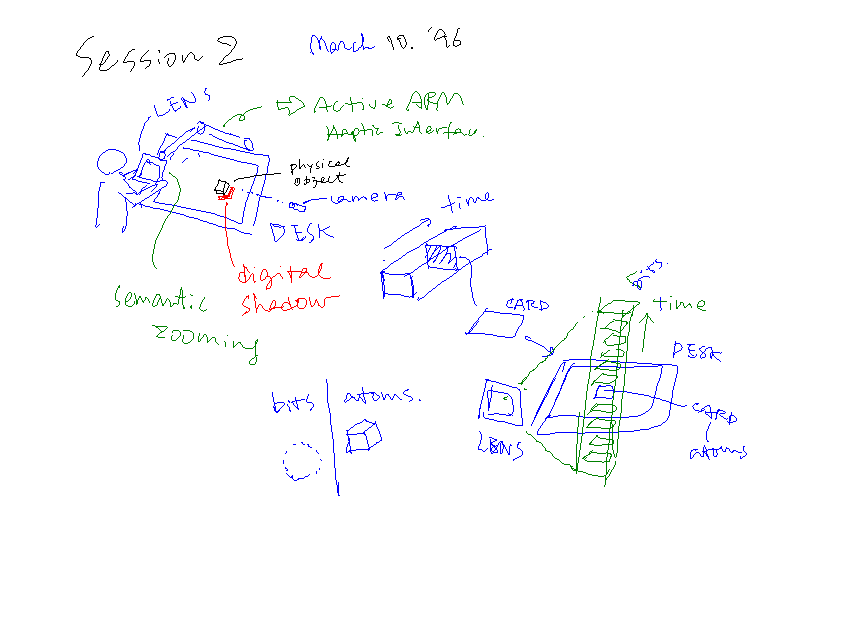 Session 2
March 10. '96
LENS
⇒ Active ARM
Haptic Interfac.
physical
object
camera
DESK
time
digital
shadow
semantic
zooming
CARD
bits.
time
DESK
bits
atoms.
LENS
CARD
atoms